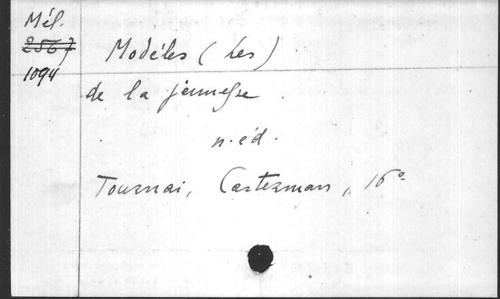 Mél.
2567
1094
Modèles (Les)
de la jeunesse
n. éd.
Tournai, Casterman, 16°